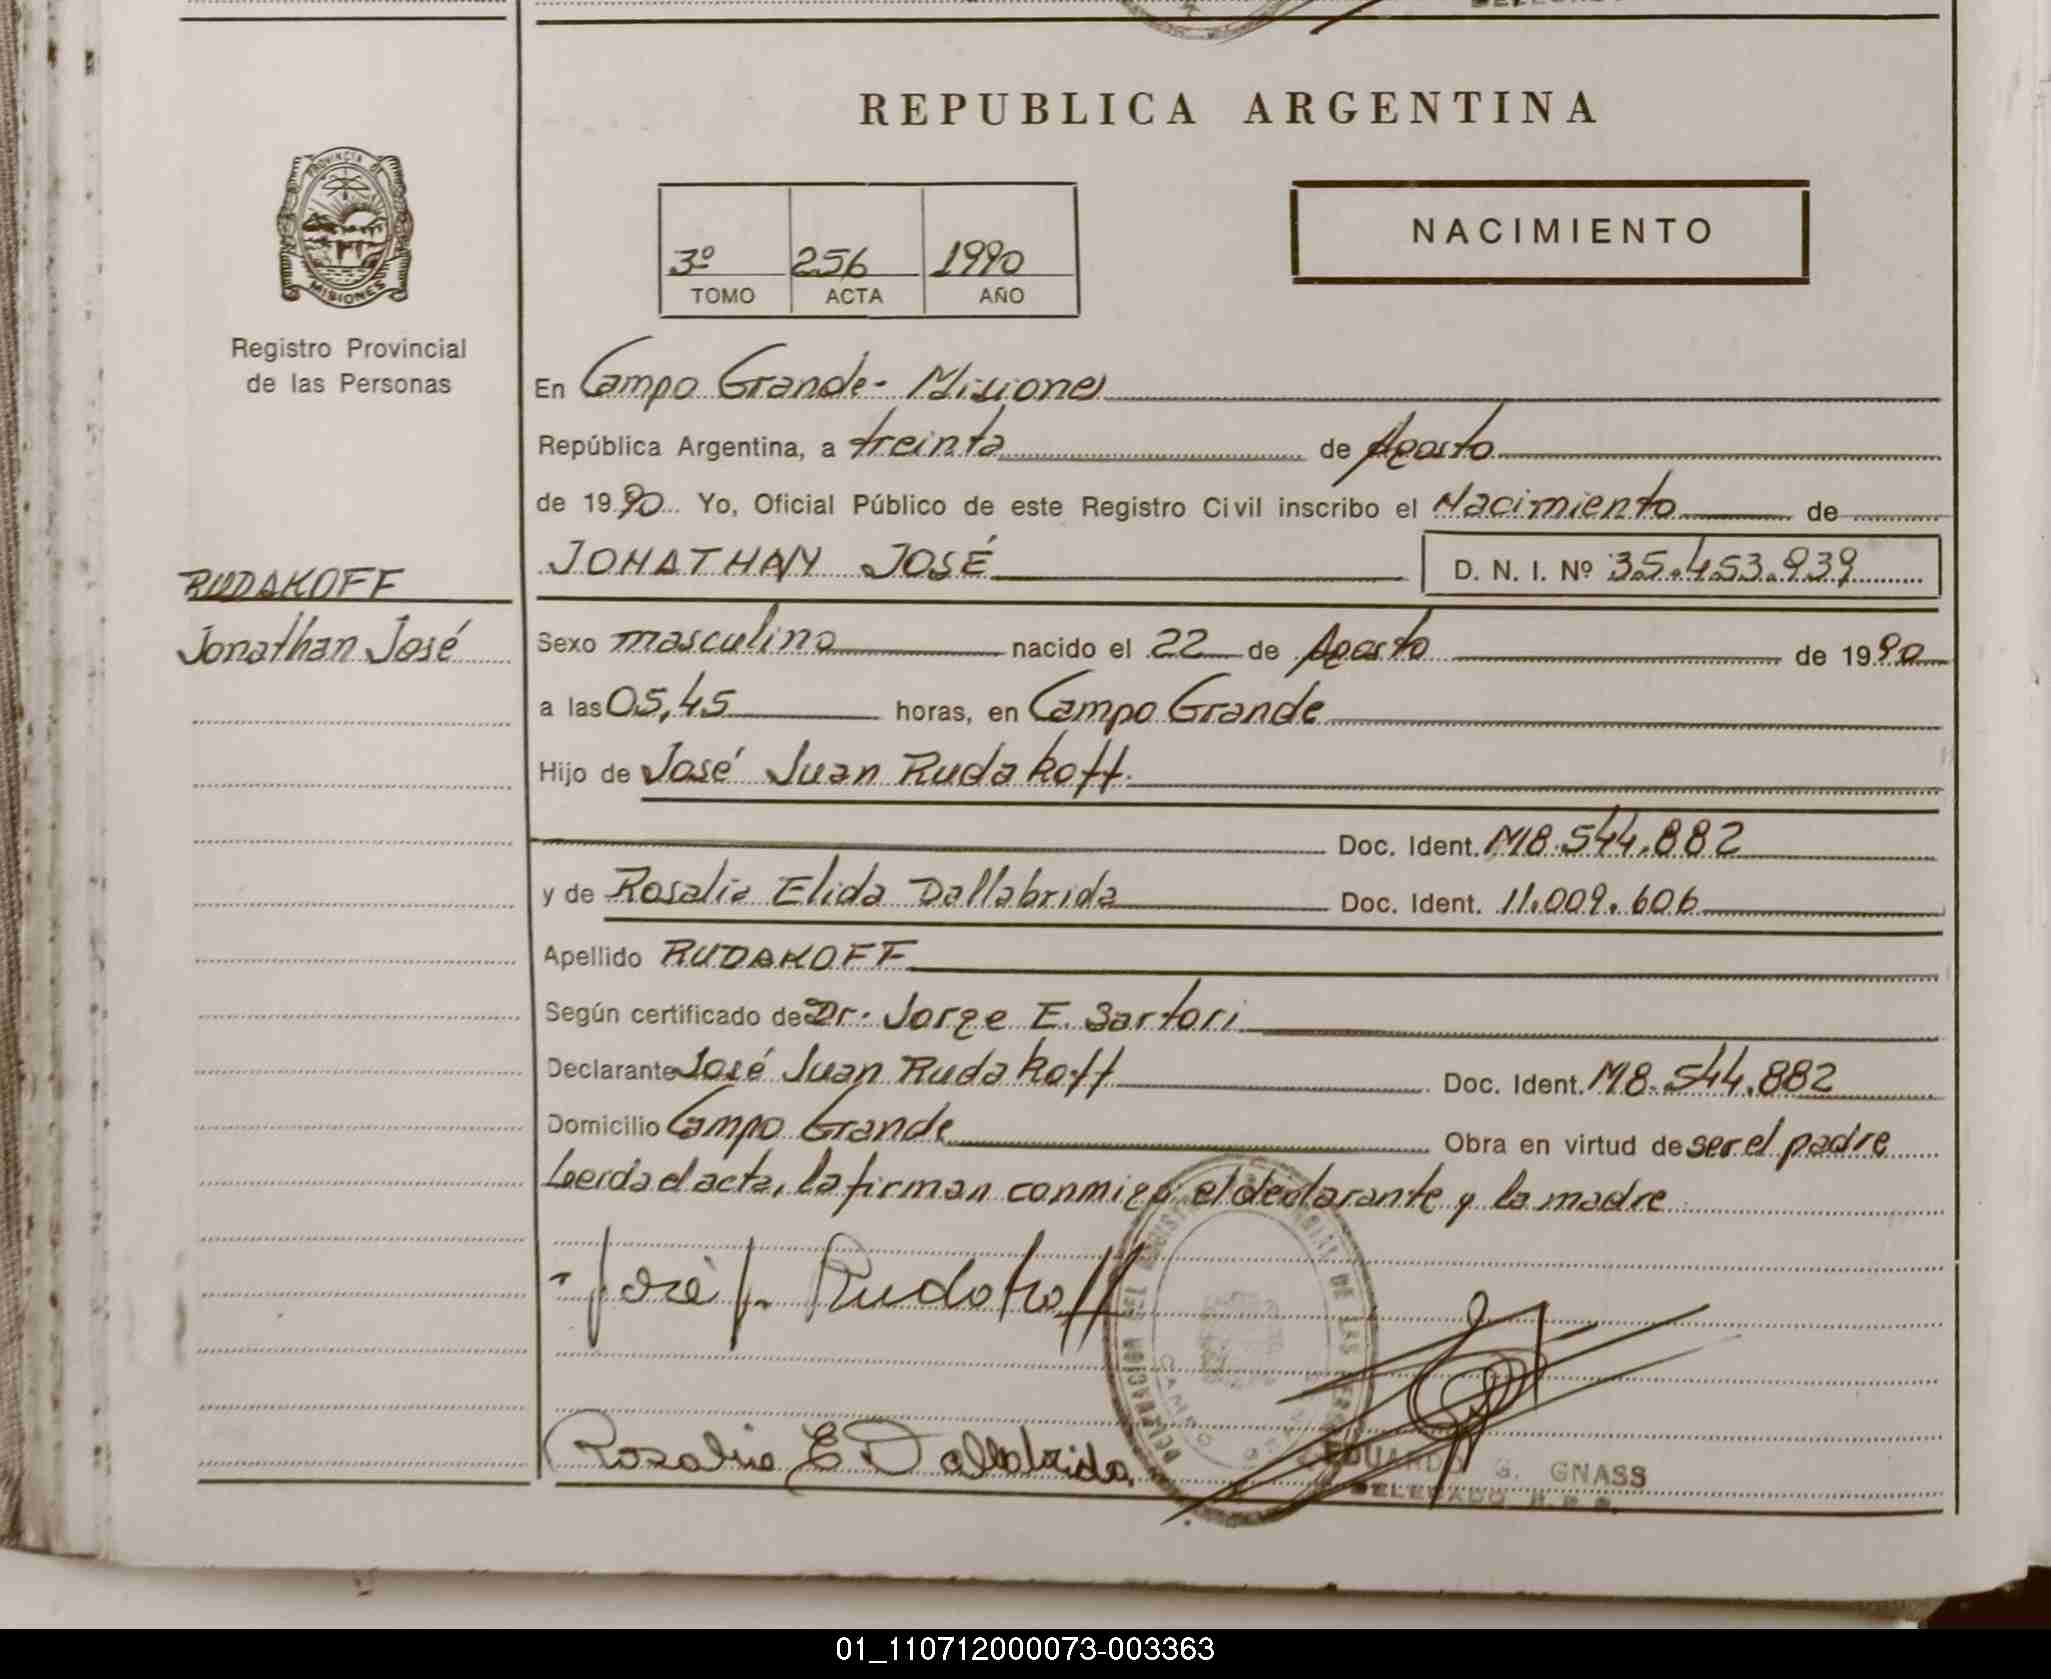 REPUBLICA ARGENTINA
PROVINCIA DE
MISIONES
Registro Provincial
de las Personas
3º 256 1990
TOMO ACTA AÑO
NACIMIENTO
En Campo Grande - Misiones
República Argentina, a treinta de Agosto
de 1990 Yo, Oficial Público de este Registro Civil inscribo el Nacimiento de
JONATHAN JOSÉ D. N. I. Nº 35.453.939
RUDAKOFF
Jonathan José
Sexo masculino nacido el 22 de Agosto de 1990
a las 05,45 horas, en Campo Grande
Hijo de José Juan Rudakoff.
Doc. Ident. M8.544.882
y de Rosalia Elida Dallabrida Doc. Ident. 11.009.606
Apellido RUDAKOFF
Según certificado de Dr. Jorge E. Sartori
Declarante José Juan Rudakoff Doc. Ident. M8.544.882
Domicilio Campo Grande Obra en virtud de ser el padre
Leída el acta, la firman conmigo el declarante y la madre
José J. Rudakoff
Rosalia E Dallabrida
EDUARDO G. GNASS
DELEGADO R.P.P.
01_110712000073-003363